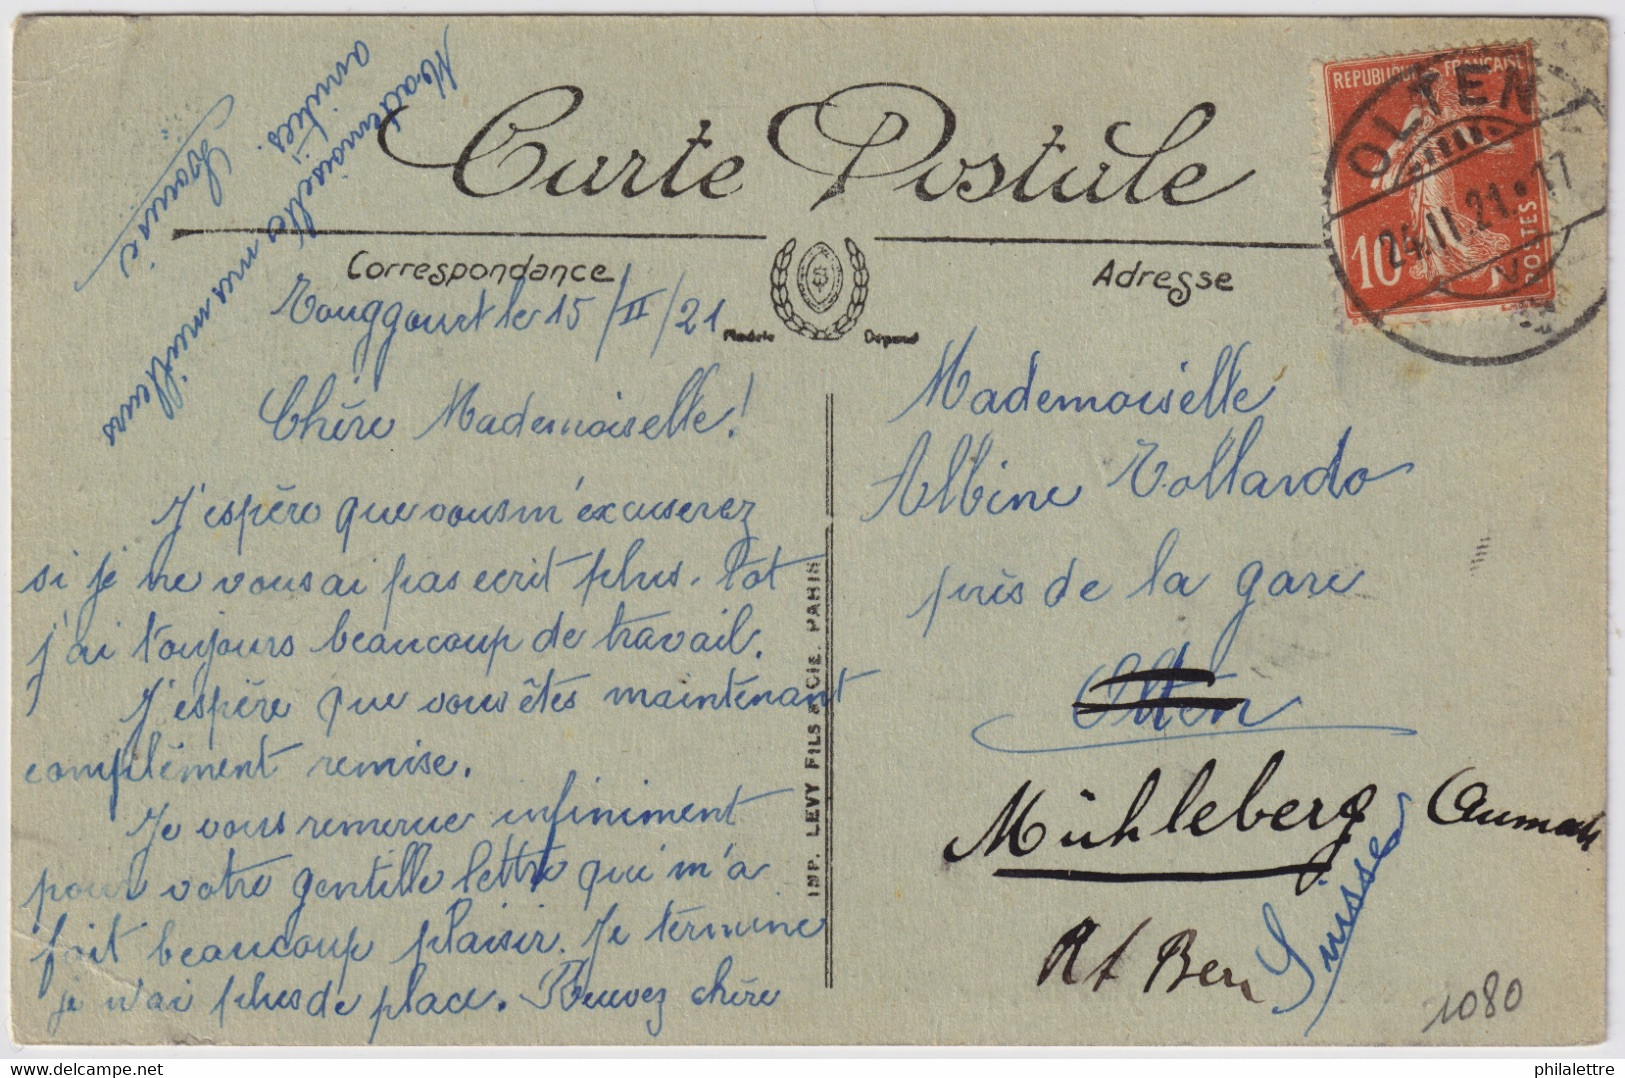 Carte Postale
Correspondance
Adresse
Modèle Déposé
REPUBLIQUE FRANÇAISE
10
POSTES
OLTEN 1
24.II.21.17
V
Touggourt le 15/II/21
Chère Mademoiselle!
J'espère que vous m'excuserez
si je ne vous ai pas ecrit plus. tot
j'ai toujours beaucoup de travail.
J'espère que vous êtes maintenant
complément remise.
Je vous remercie infiniment
pour votre gentille lettre qui m'a
fait beaucoup plaisir. Je termine
je n'ai plus de place. Recevez chère
Mademoiselle mes meilleurs
amities.
Louise
IMP. LEVY FILS & CIE. PARIS
Mademoiselle
Albine Tollardo
près de la gare
Olten
Mühleberg
Kt Bern
Suisse
1080
philalettre